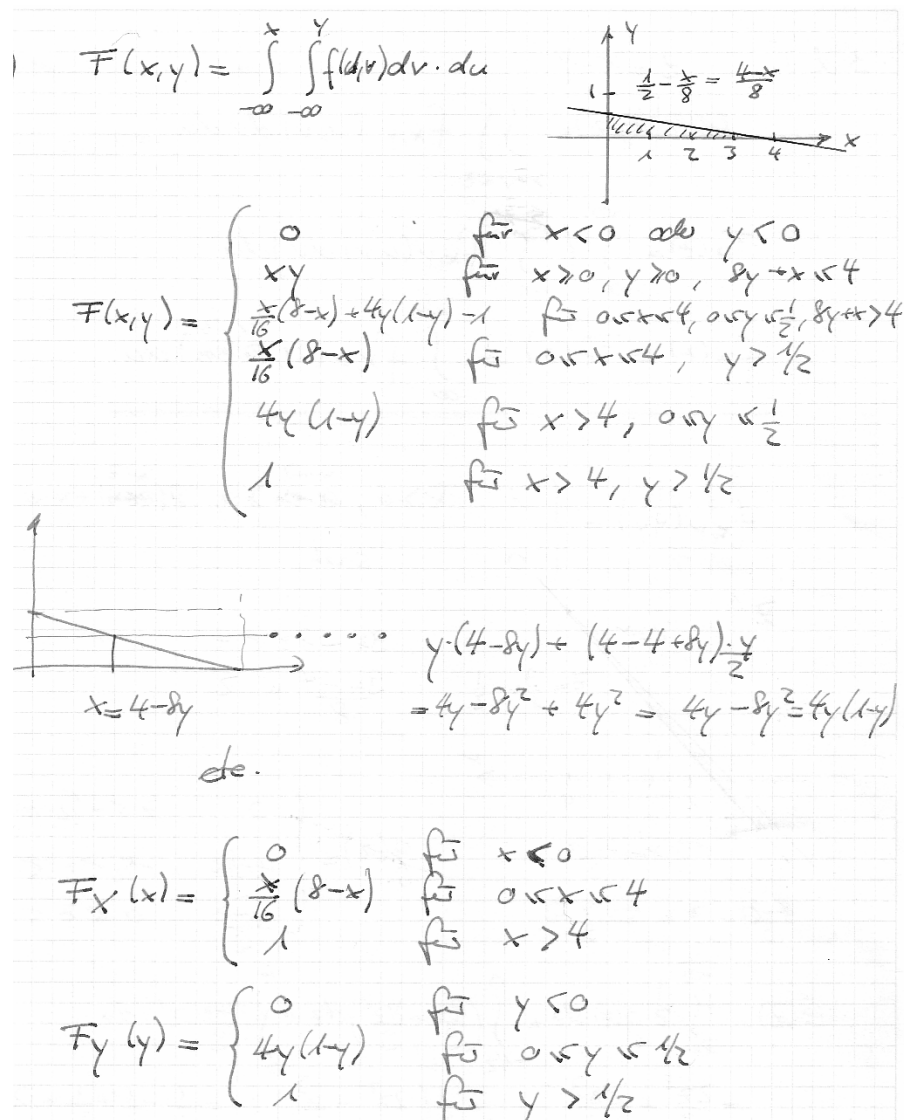 )
F(x,y) = ∫_{-∞}^{x} ∫_{-∞}^{y} f(u,v)dv·du
y
1
1/2 - x/8 = (4-x)/8
x
1 2 3 4
F(x,y) = {
0 für x<0 oder y<0
xy für x≥0, y≥0, 8y+x≤4
x/16 (8-x) + 4y(1-y) -1 für 0≤x≤4, 0≤y≤1/2, 8y+x>4
x/16 (8-x) für 0≤x≤4, y>1/2
4y(1-y) für x>4, 0≤y≤1/2
1 für x>4, y>1/2
y·(4-8y) + (4-4+8y)·y/2
x=4-8y
=4y-8y²+4y² = 4y-8y²=4y(1-y)
etc.
F_X(x) = {
0 für x<0
x/16 (8-x) für 0≤x≤4
1 für x>4
F_Y(y) = {
0 für y<0
4y(1-y) für 0≤y≤1/2
1 für y>1/2